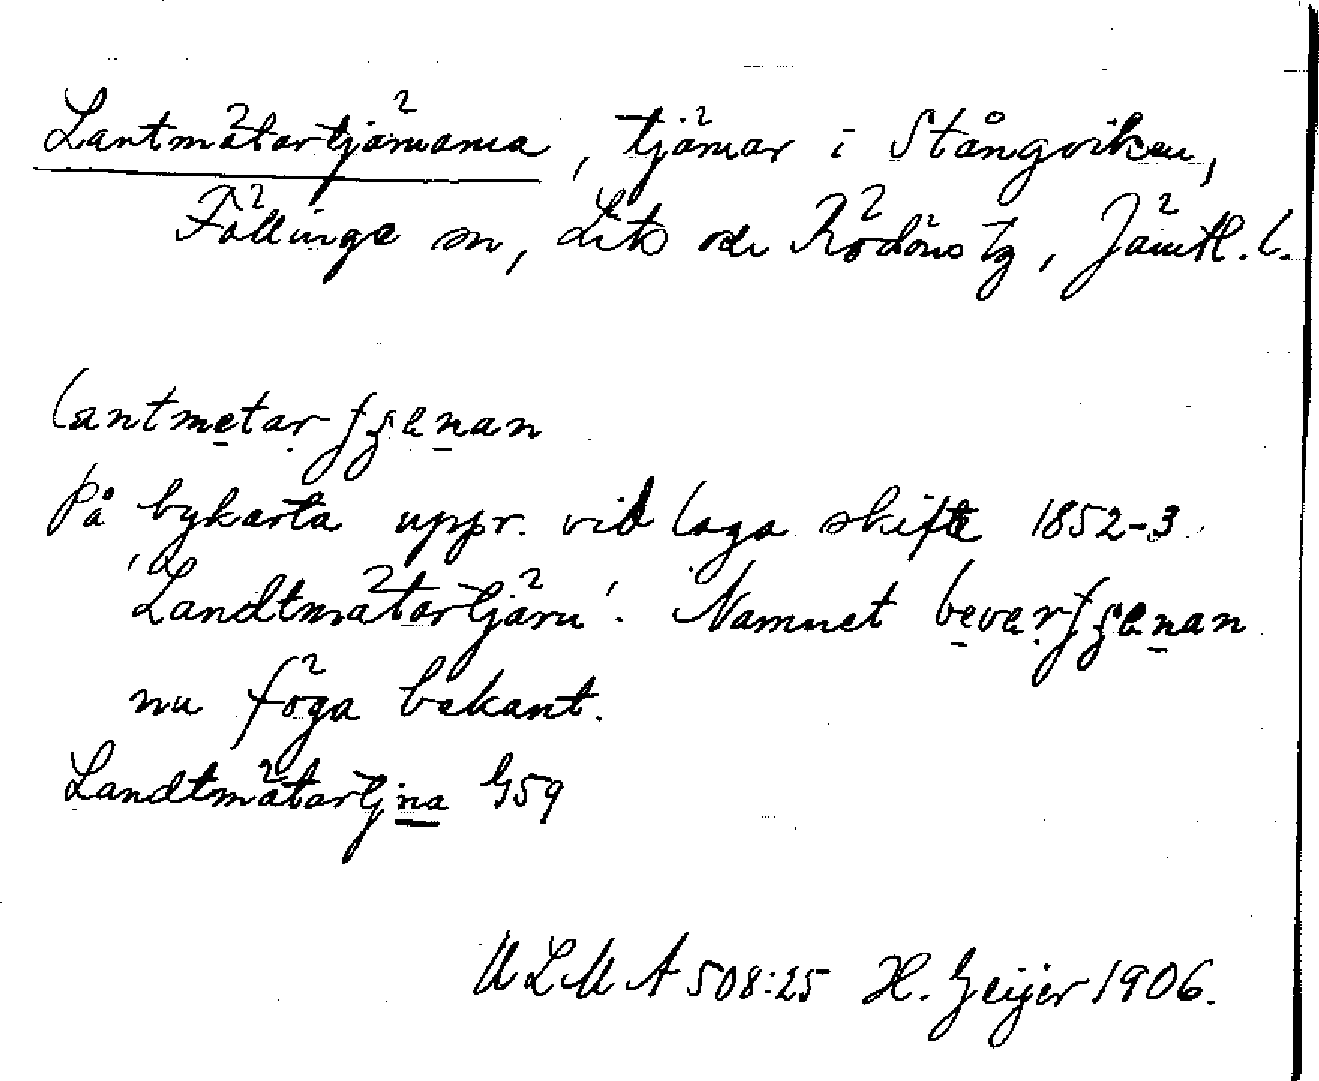 Lantmätartjärnarna, tjärnar i Stångviken,
Föllinge sn, Lits och Rödöns tg, Jämtl. l.
lantmetar
På bykarta uppr. vid laga skifte 1852-3
'Landtmätartjärn'. Namnet
nu föga bekant.
Landtmätartjna G59
ULMA 508:25 H. Geijer 1906.